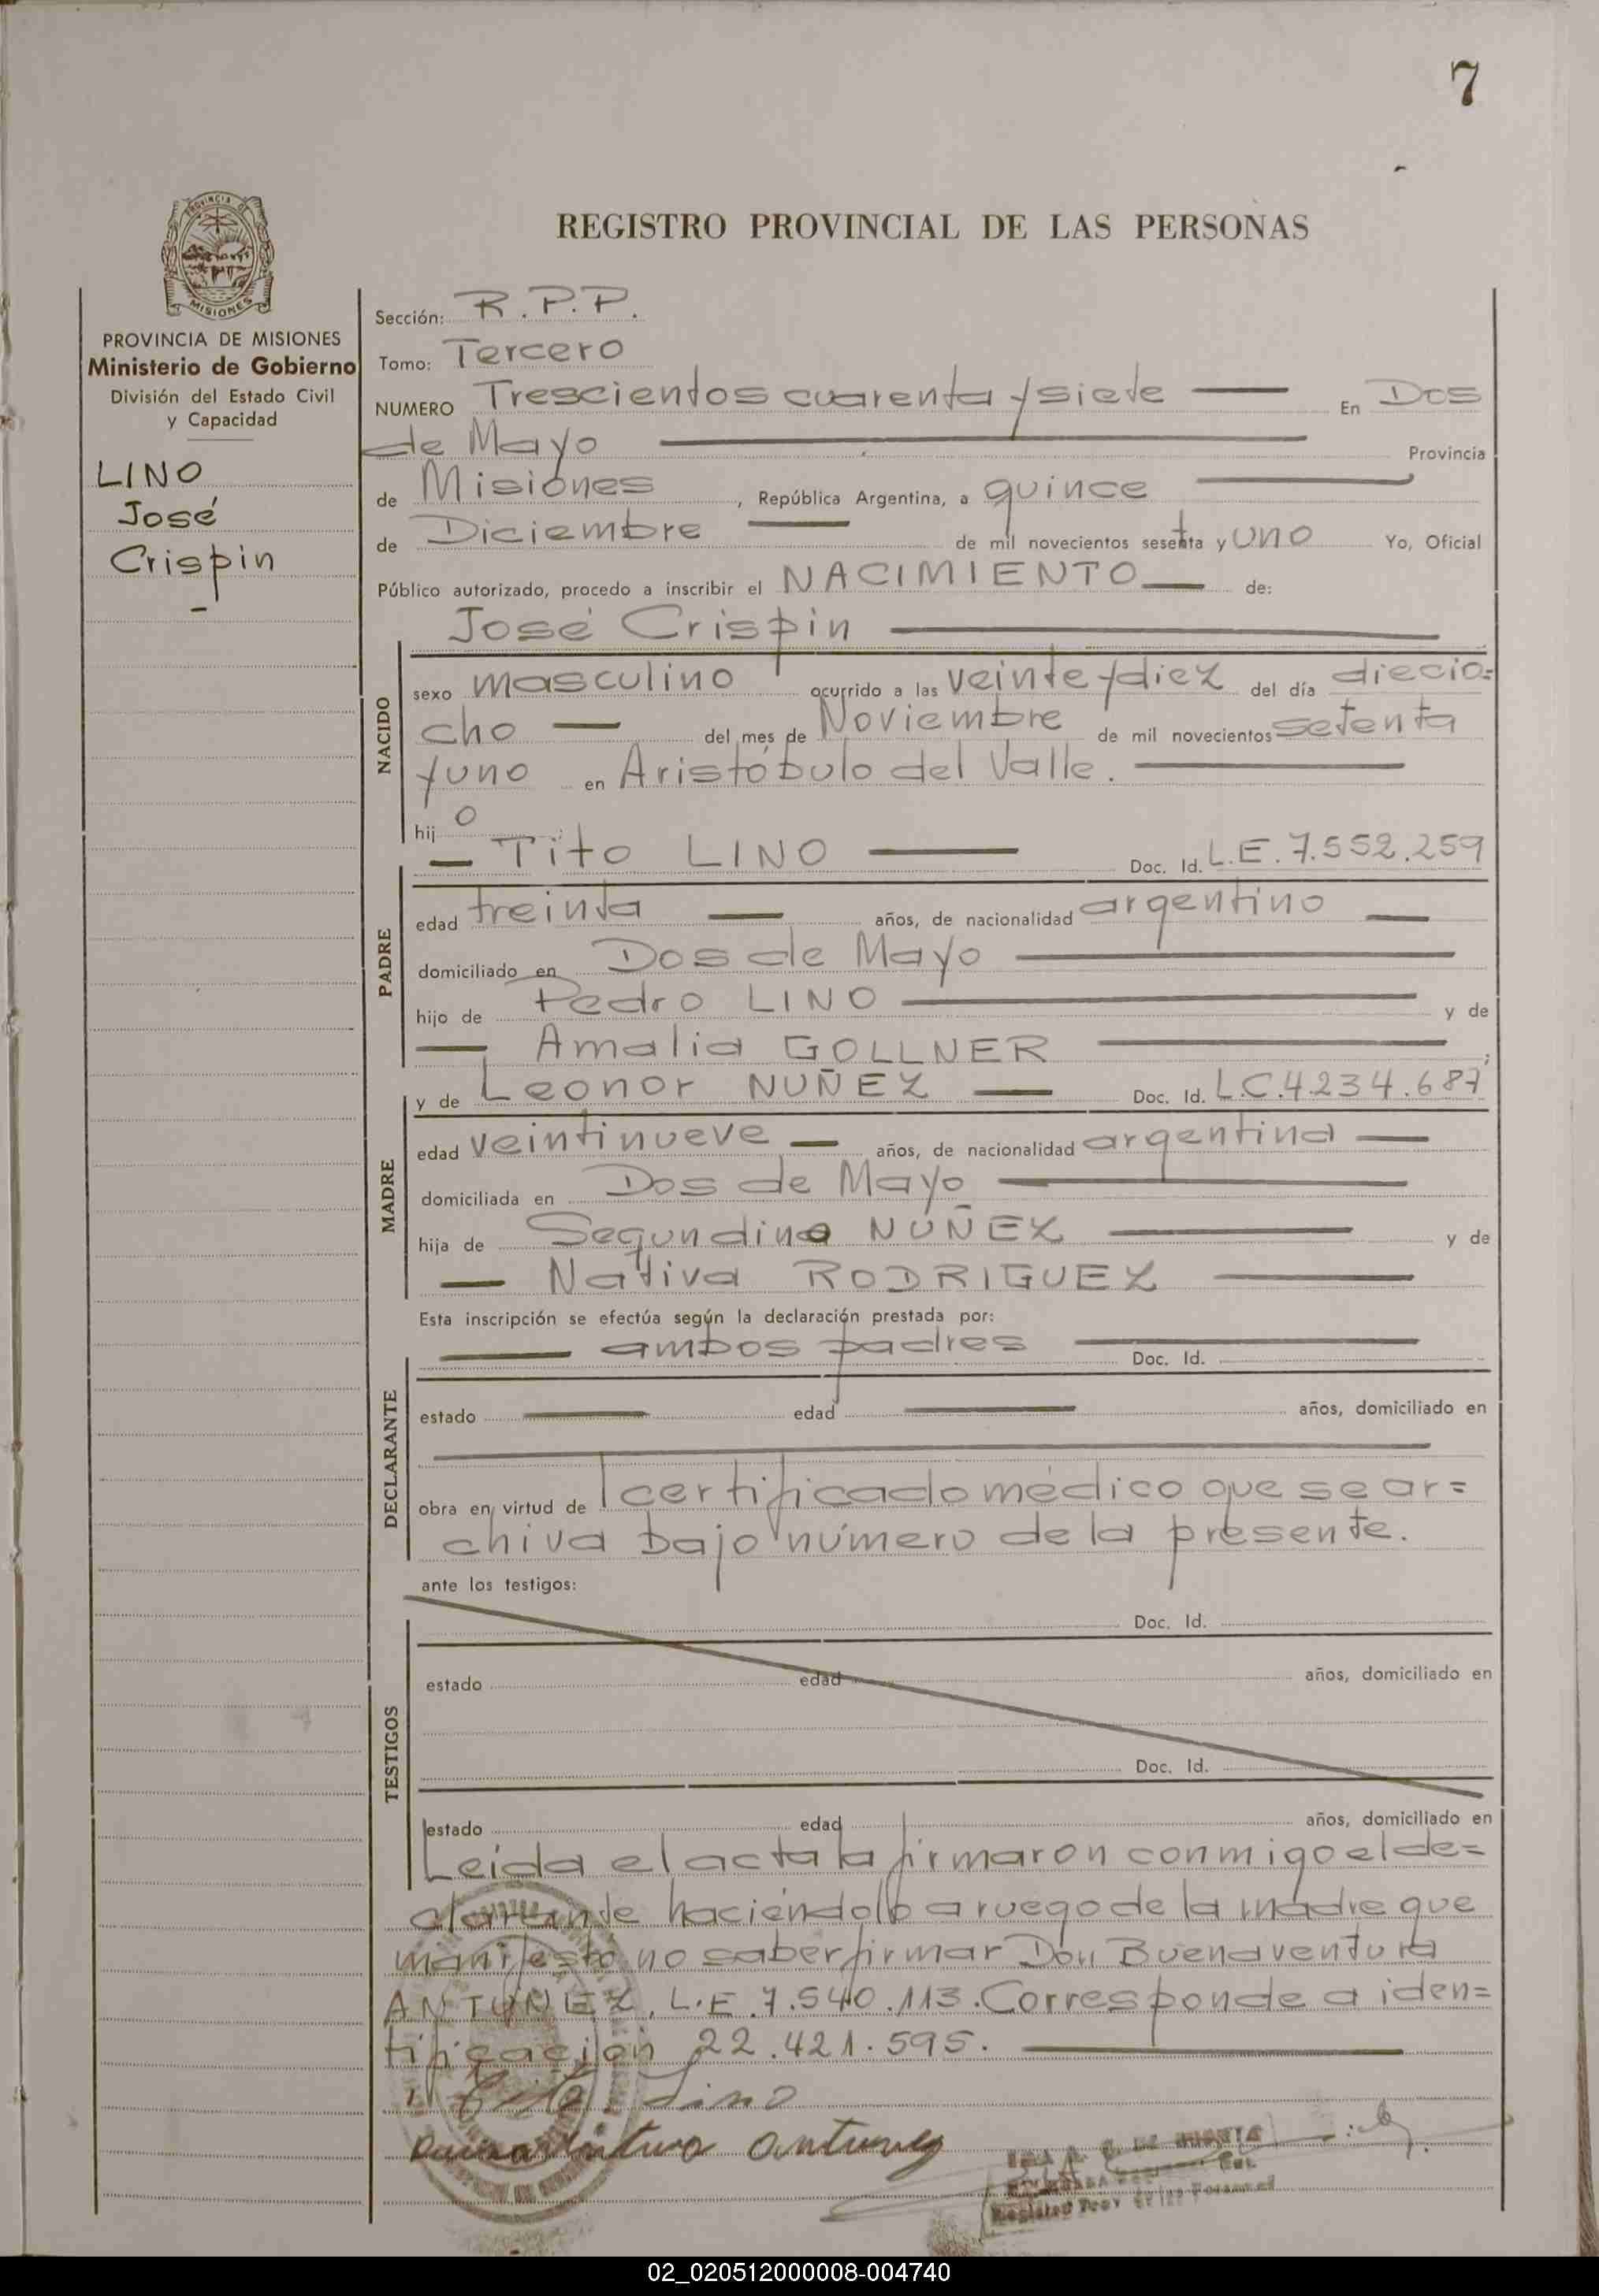 7
PROVINCIA DE
MISIONES
REGISTRO PROVINCIAL DE LAS PERSONAS
PROVINCIA DE MISIONES
Ministerio de Gobierno
División del Estado Civil
y Capacidad
LINO
José
Crispin
Sección: R.P.P.
Tomo: Tercero
NUMERO Trescientos cuarenta y siete En Dos
de Mayo Provincia
de Misiones, República Argentina, a quince
de Diciembre de mil novecientos sesenta y uno Yo, Oficial
Público autorizado, procedo a inscribir el NACIMIENTO de:
José Crispin
NACIDO
sexo masculino ocurrido a las veinte y diez del día diecio=
cho del mes de Noviembre de mil novecientos setenta
y uno en Aristóbulo del Valle.
hij o
Tito LINO Doc. Id. L.E. 7.552.259
PADRE
edad treinta años, de nacionalidad argentino
domiciliado en Dos de Mayo
hijo de Pedro LINO y de
Amalia GOLLNER ;
y de Leonor NUÑEZ Doc. Id. L.C. 4.234.687
MADRE
edad veintinueve años, de nacionalidad argentina
domiciliada en Dos de Mayo
hija de Segundino NUÑEZ y de
Nativa RODRIGUEZ
Esta inscripción se efectúa según la declaración prestada por:
ambos padres Doc. Id.
DECLARANTE
estado edad años, domiciliado en
obra en virtud de l certificado médico que se ar=
chiva bajo número de la presente.
ante los testigos:
TESTIGOS
Doc. Id.
estado edad años, domiciliado en
Doc. Id.
estado edad años, domiciliado en
Leída el acta la firmaron conmigo el de=
clarante haciéndolo a ruego de la madre que
manifestó no saber firmar Don Buenaventura
ANTUNEZ, L.E. 7.540.113. Corresponde a iden=
tificación 22.421.595.
Tito Lino
Buenaventura Antunez
02_020512000008-004740